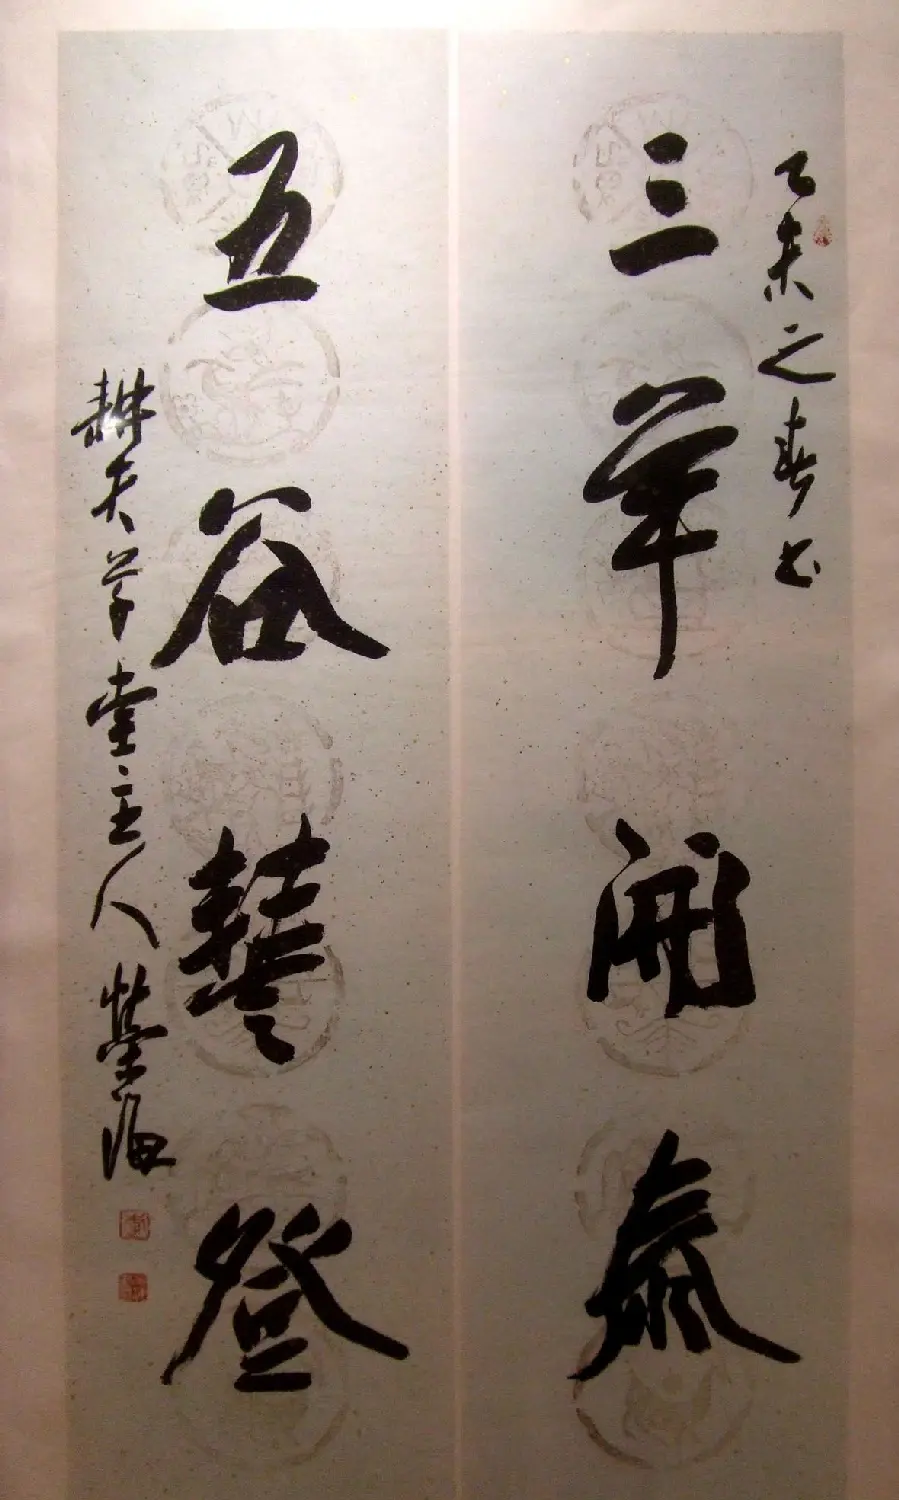 乙未之春書
三羊開泰
五谷豐登
耕夫草堂主人榮海